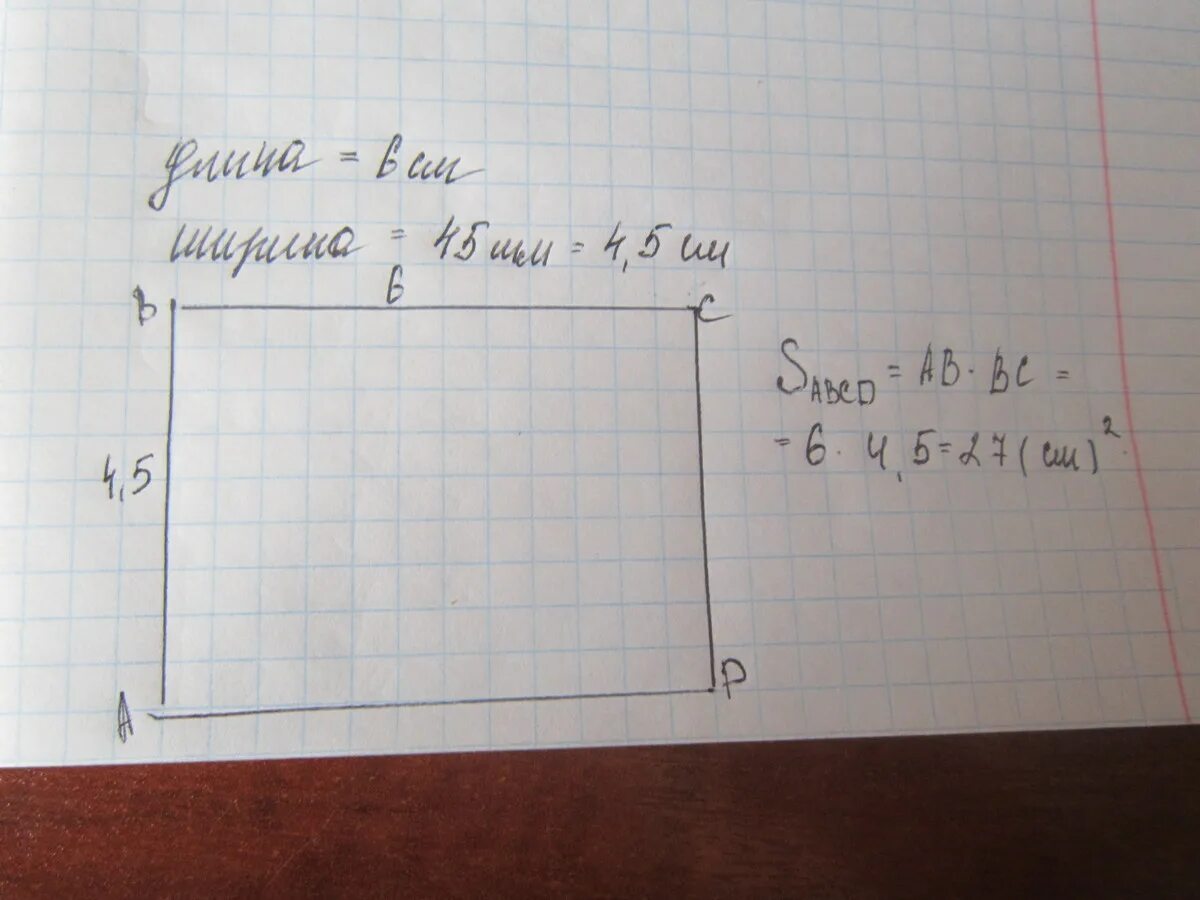 длина = 6 см
ширина = 45 мм = 4,5 см
6
B
C
S ABCD = AB · BC =
= 6 · 4,5 = 27 (см)²
4,5
A
P